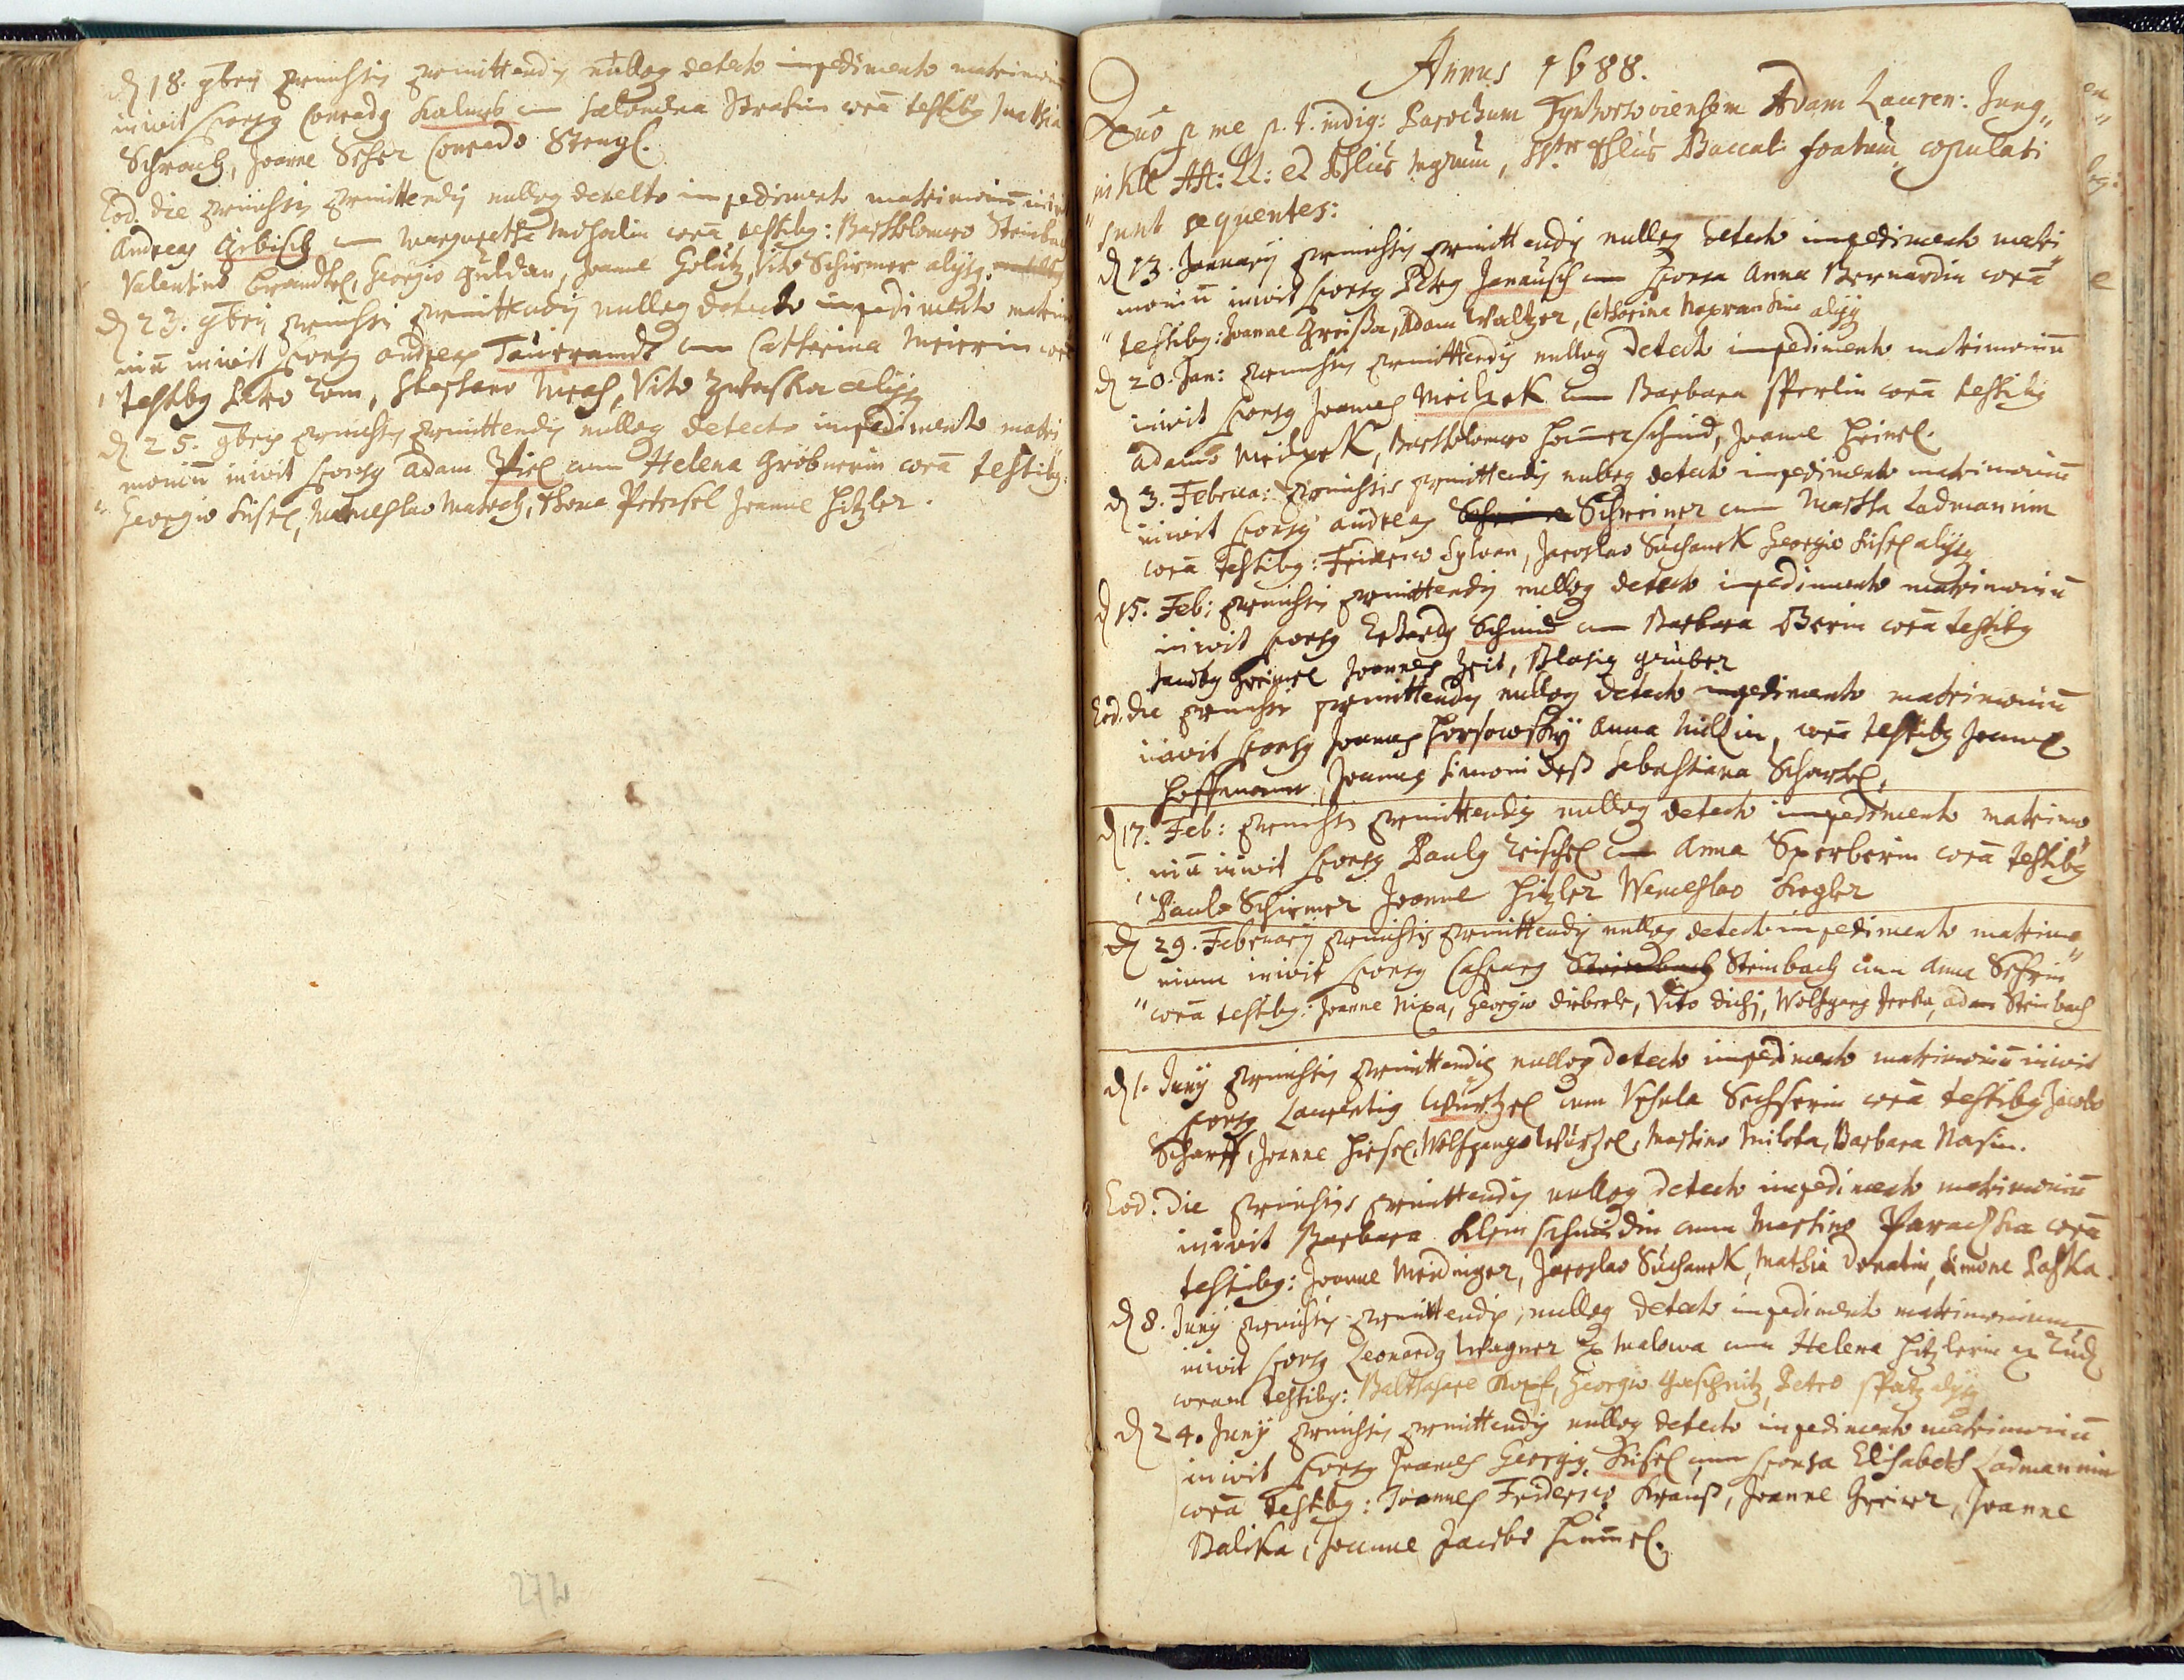 D 18. 9bris praemissis praemittendis nullog detecto impedimento matrimoni
inivit sponsg Conradg Kalmb cum Salomena Strakin corā testibg Mathia
Schrach, Joanne Seher Conrado Stengl.
Eod. die praemissis praemittendis nullog detecto impedimento matrimoniū iniv
Andreas Gebisch cum Margaretha Michalin corā testibg: Bartholomeo Steinba
Valentino Brandtel, Georgio Guldan, Joanne Golutz, Vito Schirmer alysq.
D 23. 9bris praemissis praemittendis nullog detecto impedimento matrimo
niū inivit sponsg Andreas Tauerandt cum Catharina Meierin corā
testibg Petro Tom, Stephano Mirch, Vito alysq
D 25. 9bris praemissis praemittendis nullog detecto impedimento matri
moniū inivit sponsg Adam Piel cum Helena Gröbnerin corā testibg:
Georgio Kisel, Wenceslao Maresch, Thoma Petersel Joanne Hitzler.
Annus 1688.
Quo p me p. t. indig: Parochum Adam Lauren: Jung„
AA: LL: et Phliae Mgrum, Baccal: foatum copulati
"sunt sequentes:
D 13. January praemissis praemittendis nullog detecto impedimento matri„
moniū inivit sponsg Petrg Janausch cum sponsa Anna Bernardin corā
"testibg: Joanne Greissa, Adam Waltzer, Catharina alysq
D 20. Jan: praemissis praemittendis nullog detecto impedimento matrimoniū
inivit sponsg Joannes Meixek cum Barbara Sperlin corā testibg
Adamo Meixek, Bartholomeo Hamerschmid, Joanne Heinel.
D 3. Februa: praemissis praemittendis nullog detecto impedimento matrimoniū
inivit sponsg Andreas Schreiner cum Martha Ladmannin
corā testibg: Friderico Sylvan, Jaroslao Suchanek Georgio Kisel alysq
D 15. Feb: praemissis praemittendis nullog detecto impedimento matrimoniū
inivit sponsg Erhardg Schmid cum Barbara Berin corā testibg
Jacobg Greimel Joannes Zeit, Blasig Gruber
Eod. die praemissis praemittendis nullog detecto impedimento matrimoniū
inivit sponsg Joannes Horsowskÿ Anna Millin, corā testibg Joannes
Hoffmann, Joannes Simoni Sebastiana Schartel.
D 17. Feb: praemissis praemittendis nullog detecto impedimento matrimo
niū inivit sponsg Paulg Zeischel cum Anna Sperberin corā testibg
"Paulo Schirmer Joanne Hitzler Wenceslao Kiegler
D 29. February praemissis praemittendis nullog detecto impedimento matrimo„
nium inivit sponsg Casparg Steinbach Steinbach cum Anna Sefrin
"corā testibg: Joanne Nixa, Georgio Dieberle, Vito Dichj, Wolfgang Jerka, Adam Steinbach
D 1. Juny praemissis praemittendis nullog detecto impedimento matrimoniū inivit
sponsg Laurentig Wurtzel cum Ursula Sechserin corā testibg Jacobo
Scharff, Joanne Hiesel, Wolfgango Würtzel, Martino Milota, Barbara Nasin.
Eod. Die praemissis praemittendis nullog detecto impedimento matrimoniū
inivit Barbara Kleinschmidin cum Martino Paraczka corā
testibg: Joanne Meidinger, Jaroslao Suchanek, Mathia Donatin, Simone Paska.
D 8. Juny praemissis praemittendis, nullog detecto impedimento matrimonium
inivit sponsg Leonardg Wagner ex Malowa cum Helena Hitzlerin ex Tudl
coram testibg: Balthasare Kopf, Georgio Goeschnitz, Petro Spatz alysq
D 24. Juny praemissis praemittendis nullog detecto impedimento matrimoniū
inivit sponsg Joannes Georgig Kisel cum sponsa Elisabeth Ladmannin
corā testibg: Joannes Friderico Krauß, Joanne Greiner, Joanne
Balika, Joanne Jacobo Himel.
272